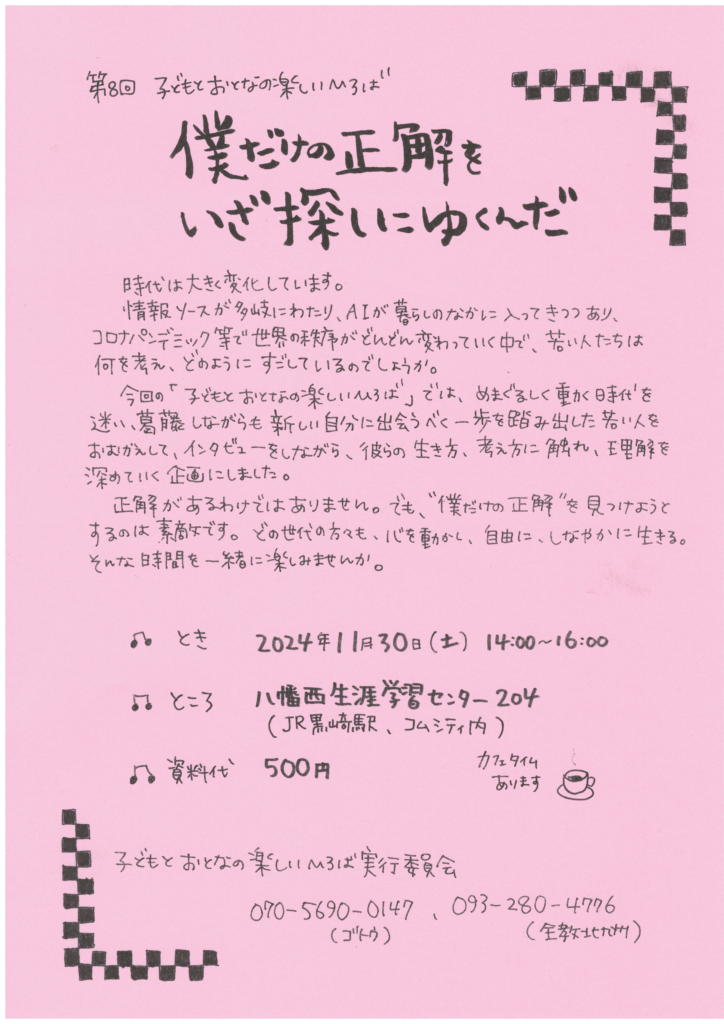 第8回 子どもとおとなの楽しいひろば
僕だけの正解を
いざ探しにゆくんだ
時代は大きく変化しています。
情報ソースが多岐にわたり、AIが暮らしのなかに入ってきつつあり、
コロナパンデミック等で世界の秩序がどんどん変わっていく中で、若い人たちは
何を考え、どのようにすごしているのでしょうか。
今回の「子どもとおとなの楽しいひろば」では、めまぐるしく動く時代を
迷い、葛藤しながらも新しい自分に出会うべく一歩を踏み出した若い人を
おむかえして、インタビューをしながら、彼らの生き方、考え方に触れ、理解を
深めていく企画にしました。
正解があるわけではありません。でも、"僕だけの正解"を見つけようと
するのは素敵です。どの世代の方々も、心を動かし、自由に、しなやかに生きる。
そんな時間を一緒に楽しみませんか。
♫ とき 2024年11月30日(土) 14:00~16:00
♫ ところ 八幡西生涯学習センター204
(JR黒崎駅、コムシティ内)
♫ 資料代 500円
カフェタイム
あります
子どもとおとなの楽しいひろば実行委員会
070-5690-0147、093-280-4776
(ゴトウ) (全教北九州)